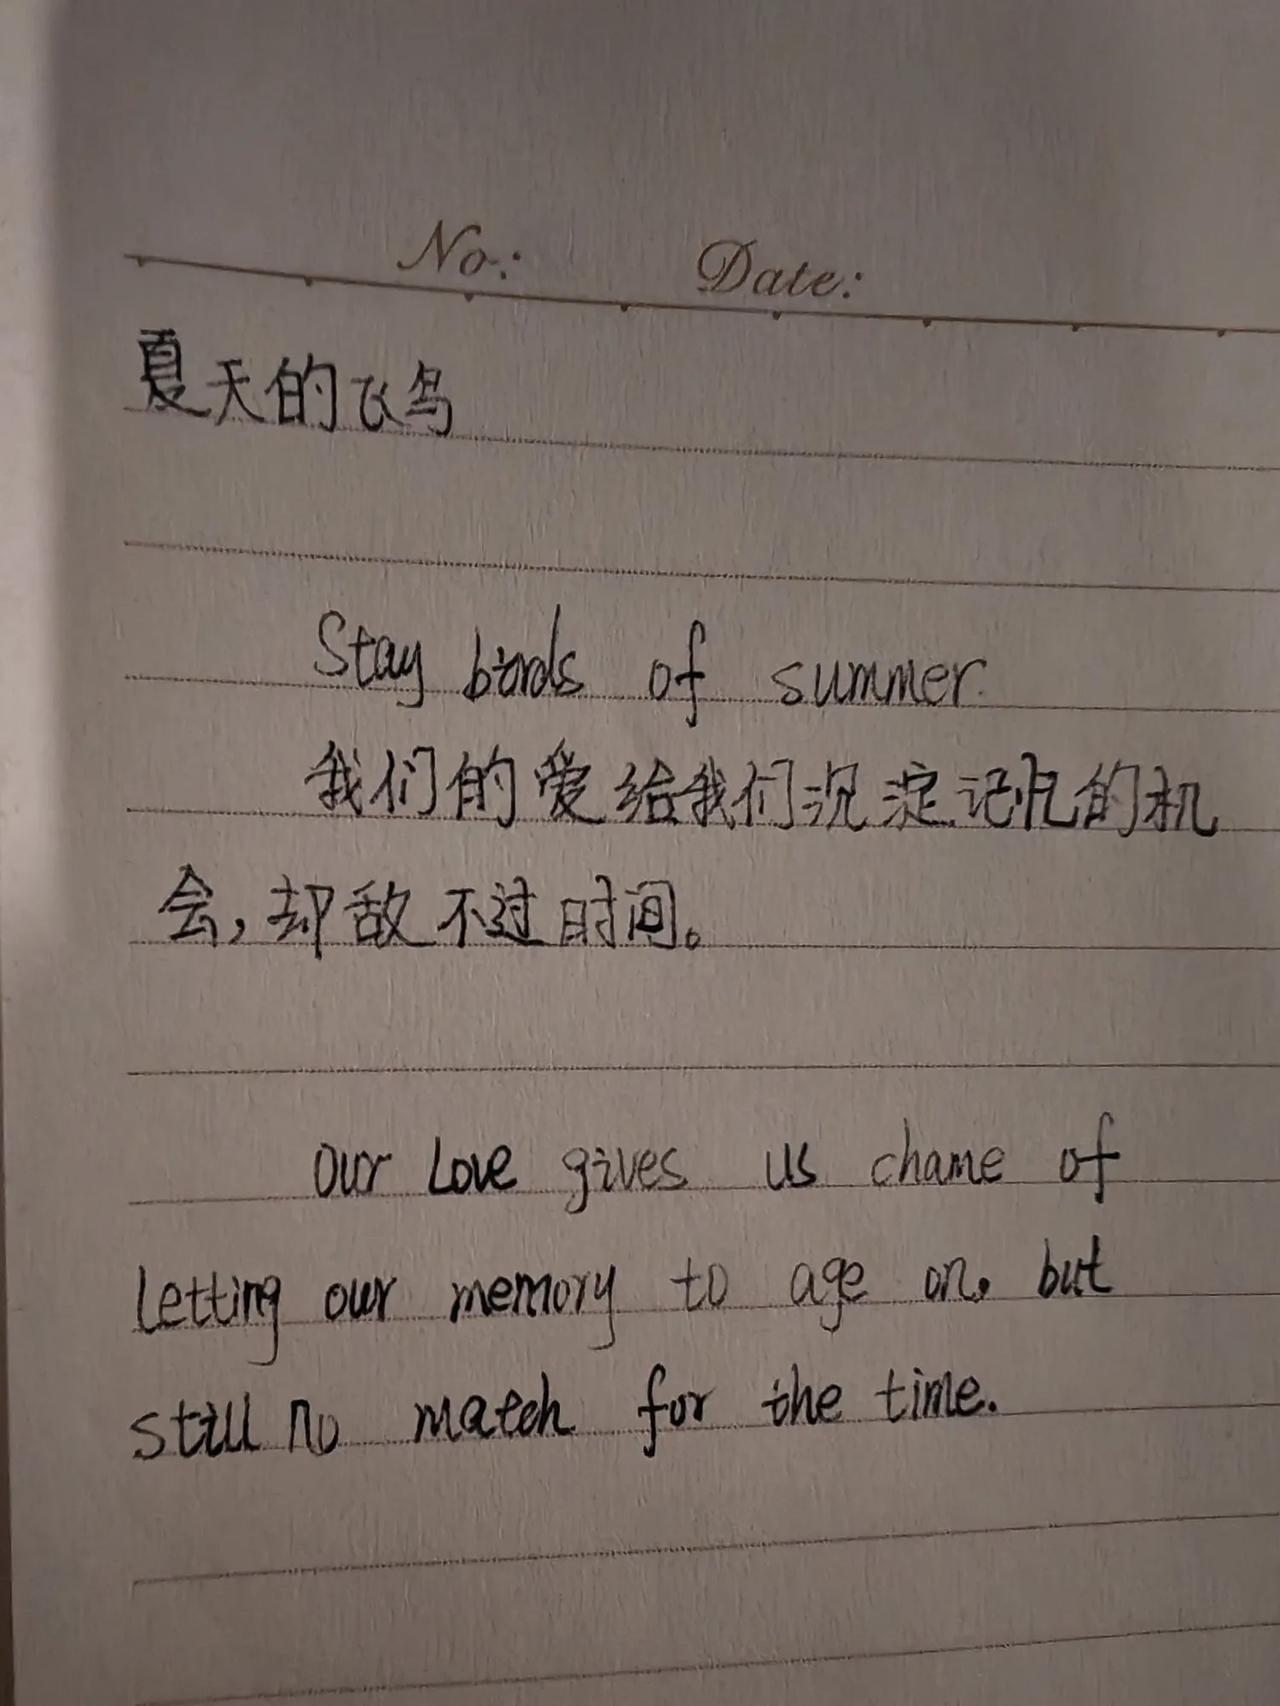 No.: Date:
夏天的飞鸟
Stay birds of summer.
我们的爱给我们沉淀记忆的机
会，却敌不过时间。
Our Love gives us chame of
letting our memory to age on, but
still no match for the time.